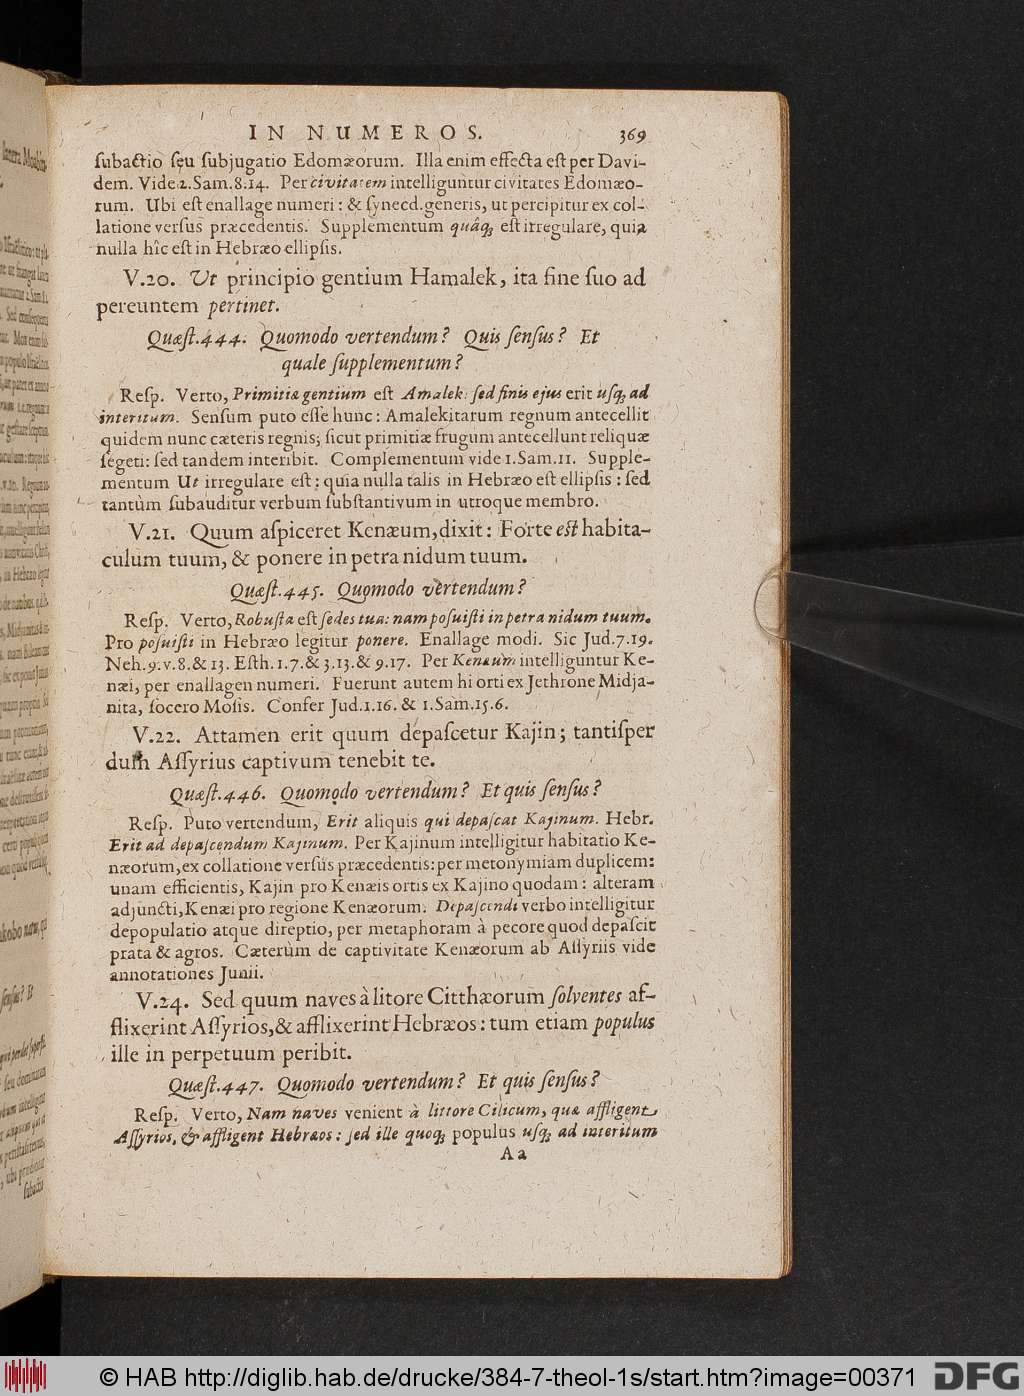 IN NUMEROS. 369
subactio seu subjugatio Edomæorum. Illa enim effecta est per Davi-
dem. Vide 2.Sam.8.14. Per civitatem intelliguntur civitates Edomæo-
rum. Ubi est enallage numeri: & synecd.generis, ut percipitur ex col-
latione versus præcedentis. Supplementum quâq; est irregulare, quia
nulla hîc est in Hebræo ellipsis.
V.20. Ut principio gentium Hamalek, ita fine suo ad
pereuntem pertinet.
Quæst.444. Quomodo vertendum? Quis sensus? Et
quale supplementum?
Resp. Verto, Primitiæ gentium est Amalek: sed finis ejus erit usq; ad
interitum. Sensum puto esse hunc: Amalekitarum regnum antecellit
quidem nunc cæteris regnis; sicut primitiæ frugum antecellunt reliquæ
segeti: sed tandem interibit. Complementum vide 1.Sam.11. Supple-
mentum Ut irregulare est: quia nulla talis in Hebræo est ellipsis: sed
tantùm subauditur verbum substantivum in utroque membro.
V.21. Quum aspiceret Kenæum, dixit: Forte est habita-
culum tuum, & ponere in petra nidum tuum.
Quæst.445. Quomodo vertendum?
Resp. Verto, Robusta est sedes tua: nam posuisti in petra nidum tuum.
Pro posuisti in Hebræo legitur ponere. Enallage modi. Sic Jud.7.19.
Neh.9.v.8.& 13. Esth.1.7.& 3.13.& 9.17. Per Kenæum intelliguntur Ke-
næi, per enallagen numeri. Fuerunt autem hi orti ex Jethrone Midja-
nita, socero Mosis. Confer Jud.1.16.& 1.Sam.15.6.
V.22. Attamen erit quum depascetur Kajin; tantisper
dum Assyrius captivum tenebit te.
Quæst.446. Quomodo vertendum? Et quis sensus?
Resp. Puto vertendum, Erit aliquis qui depascat Kajinum. Hebr.
Erit ad depascendum Kajinum. Per Kajinum intelligitur habitatio Ke-
næorum, ex collatione versus præcedentis: per metonymiam duplicem:
unam efficientis, Kajin pro Kenæis ortis ex Kajino quodam: alteram
adjuncti, Kenæi pro regione Kenæorum. Depascendi verbo intelligitur
depopulatio atque direptio, per metaphoram à pecore quod depascit
prata & agros. Cæterùm de captivitate Kenæorum ab Assyriis vide
annotationes Junii.
V.24. Sed quum naves à litore Citthæorum solventes af-
flixerint Assyrios, & afflixerint Hebræos: tum etiam populus
ille in perpetuum peribit.
Quæst.447. Quomodo vertendum? Et quis sensus?
Resp. Verto, Nam naves venient à littore Cilicum, quæ affligent
Assyrios, & affligent Hebræos: sed ille quoq; populus usq; ad interitum
Aa
© HAB http://diglib.hab.de/drucke/384-7-theol-1s/start.htm?image=00371
DFG